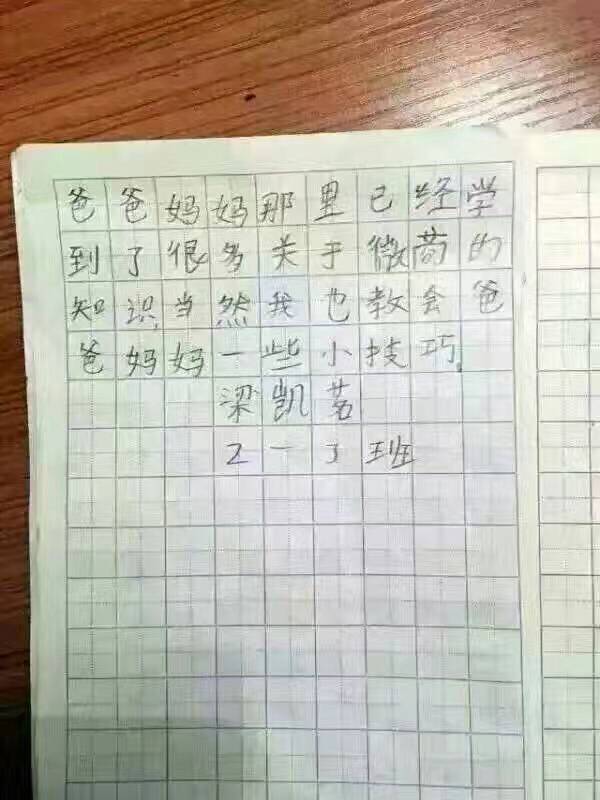 爸爸妈妈那里已经学
到了很多关于微商的
知识当然我也教会爸
爸妈妈一些小技巧。
梁凯茗
2一3班